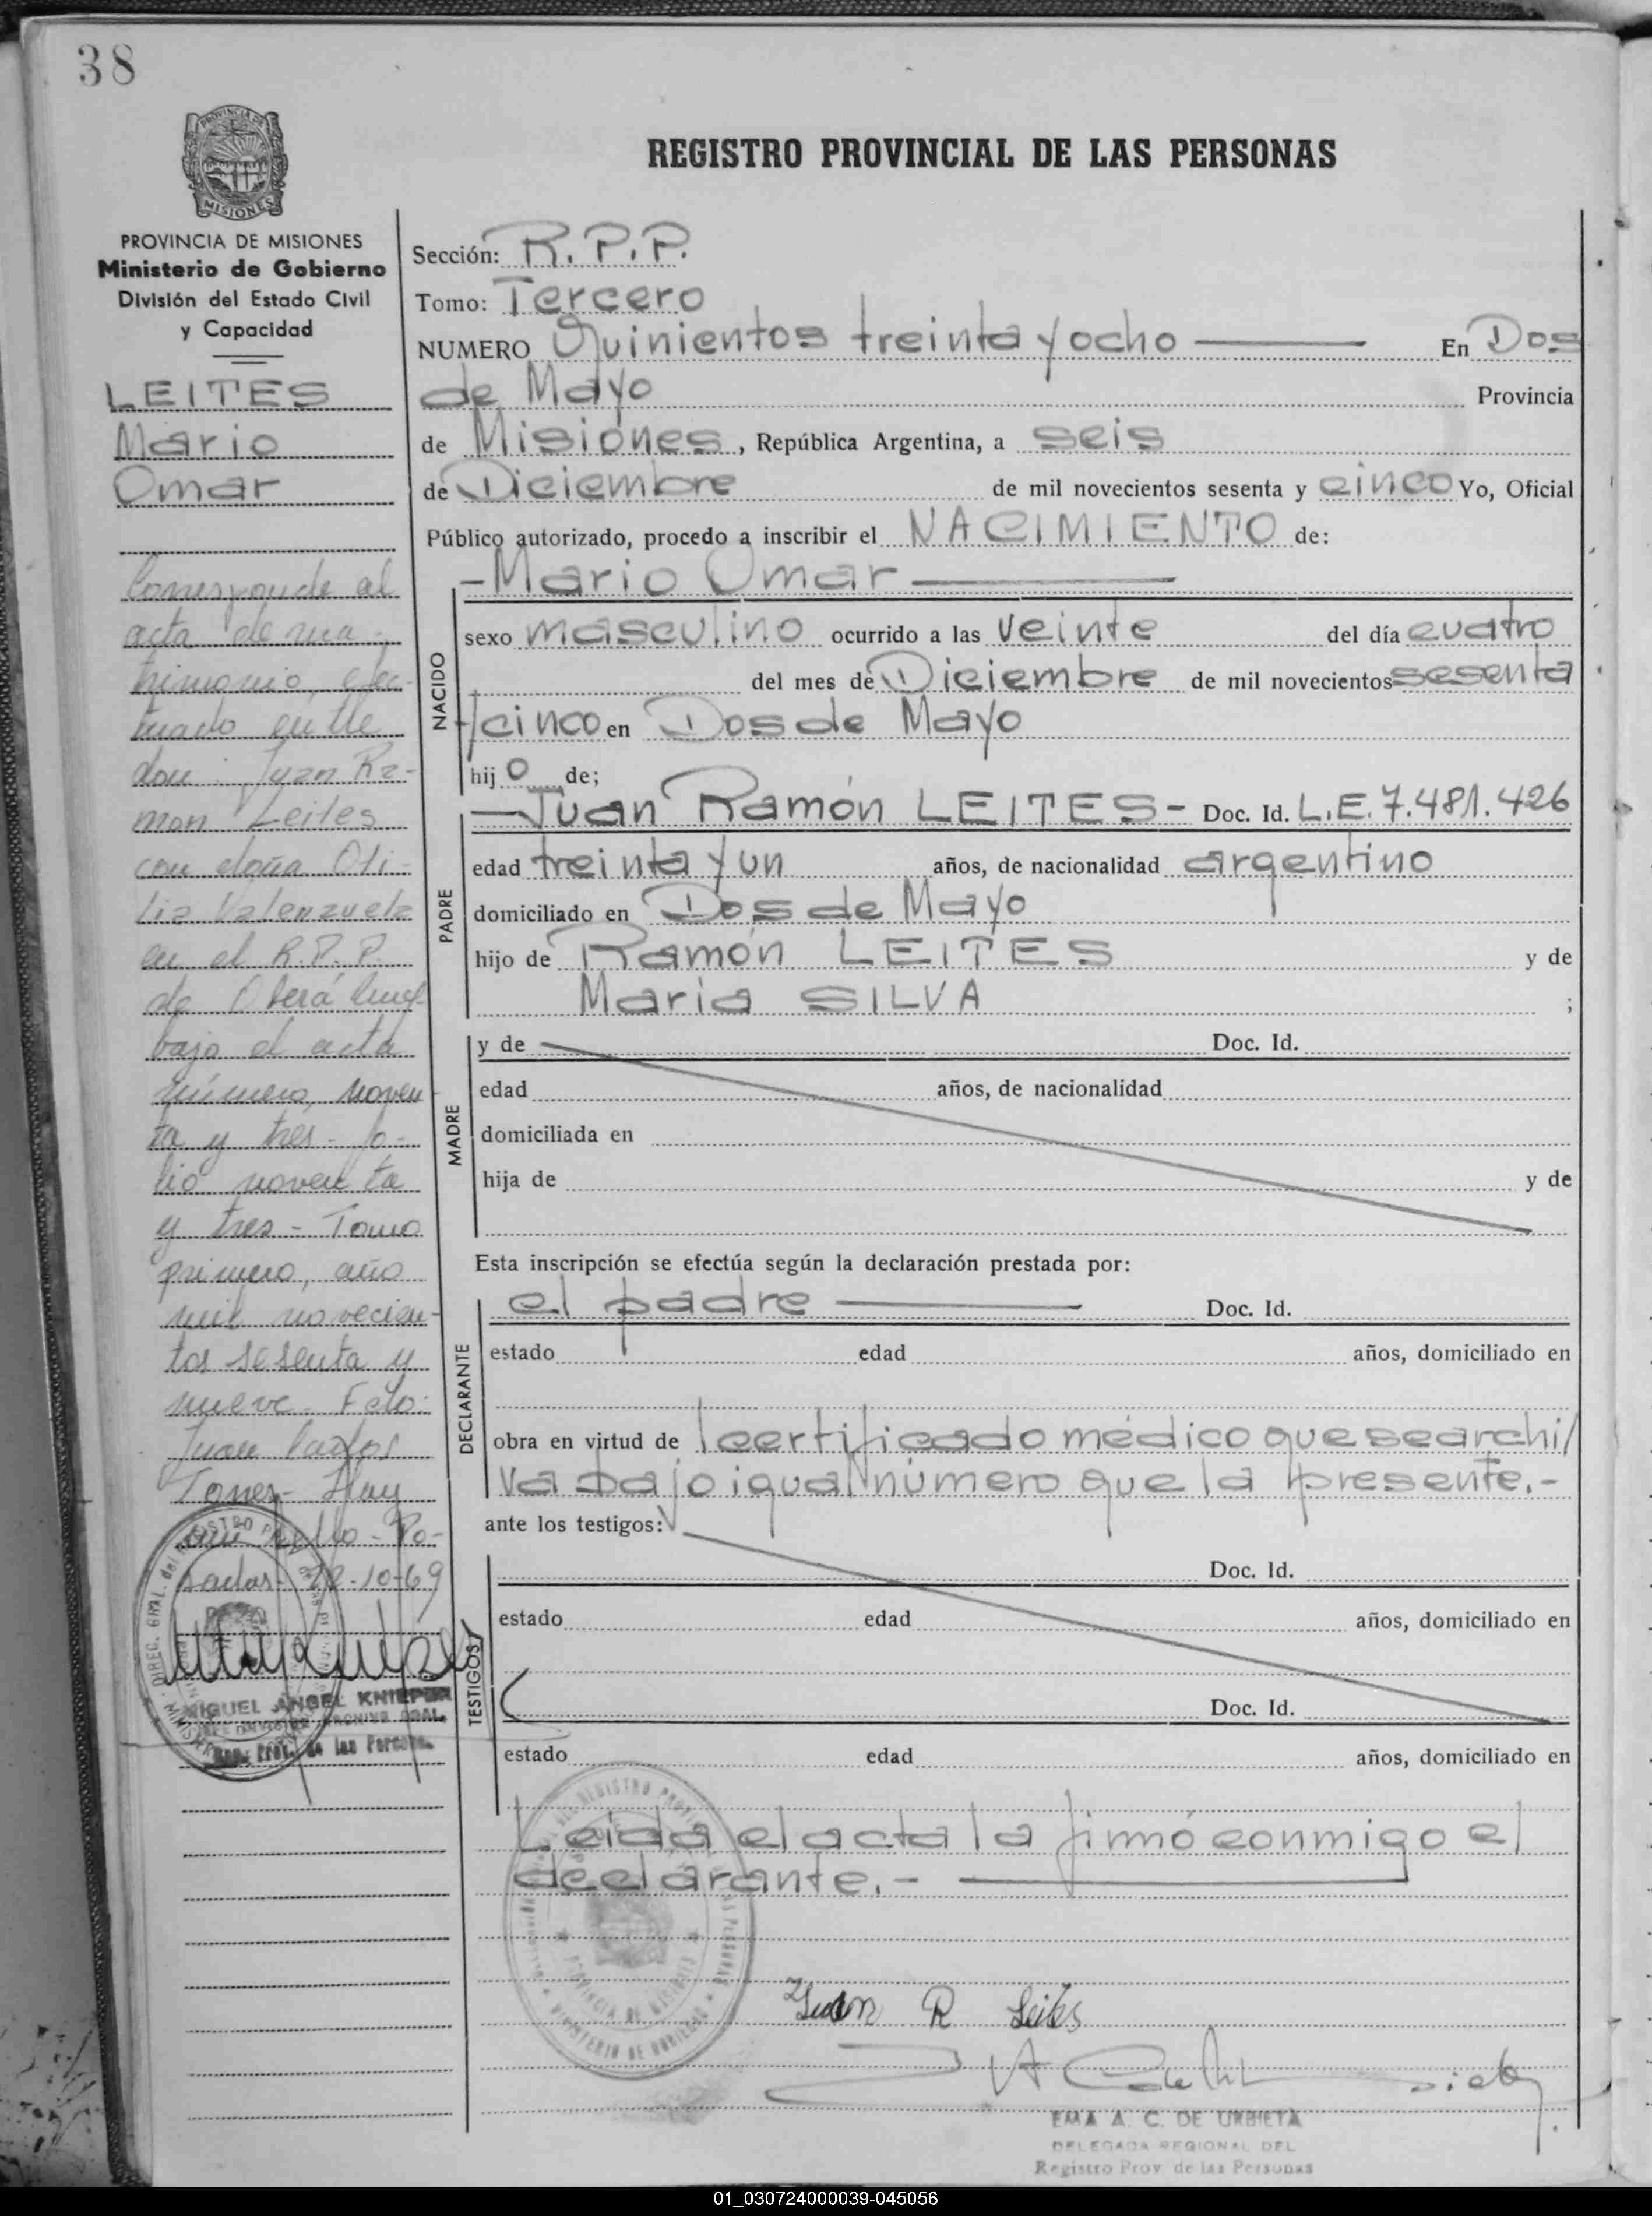 38
PROVINCIA DE
MISIONES
REGISTRO PROVINCIAL DE LAS PERSONAS
PROVINCIA DE MISIONES
Ministerio de Gobierno
División del Estado Civil
y Capacidad
LEITES
Mario
Omar
Corresponde al
acta de ma-
trimonio, efec-
tuado entre
don: Juan Ra-
mon Leites
con doña Oti-
lia Valenzuela
en el R.P.P.
de Oberá
bajo el acta
número, noven
ta y tres- fo-
lio noventa
y tres- Tomo
primero, año
mil novecien-
tos sesenta y
nueve- Fdo:
Juan Carlos
Torres- Hay
un sello- Po-
sadas- 22-10-69
MIGUEL ANGEL
Reg. Prov. de las Personas
Sección: R.P.P.
Tomo: Tercero
NUMERO Quinientos treinta y ocho En Dos
de Mayo Provincia
de Misiones, República Argentina, a seis
de Diciembre de mil novecientos sesenta y cinco Yo, Oficial
Público autorizado, procedo a inscribir el NACIMIENTO de:
NACIDO
-Mario Omar
sexo masculino ocurrido a las veinte del día cuatro
del mes de Diciembre de mil novecientos sesenta
y cinco en Dos de Mayo
hijo de;
PADRE
-Juan Ramón LEITES- Doc. Id. L.E. 7.481.426
edad treinta y un años, de nacionalidad argentino
domiciliado en Dos de Mayo
hijo de Ramón LEITES y de
Maria SILVA ;
MADRE
y de Doc. Id.
edad años, de nacionalidad
domiciliada en
hija de y de
Esta inscripción se efectúa según la declaración prestada por:
DECLARANTE
el padre Doc. Id.
estado edad años, domiciliado en
obra en virtud de l certificado médico que se archi/
va bajo igual número que la presente.-
ante los testigos:
TESTIGOS
Doc. Id.
estado edad años, domiciliado en
Doc. Id.
estado edad años, domiciliado en
Leida el acta la firmó conmigo el
declarante.-
PROVINCIA DE MISIONES
MINISTERIO DE GOBIERNO
Juan R Leites
EMA A. C. DE URBIETA
DELEGADA REGIONAL DEL
Registro Prov. de las Personas
01_030724000039-045056